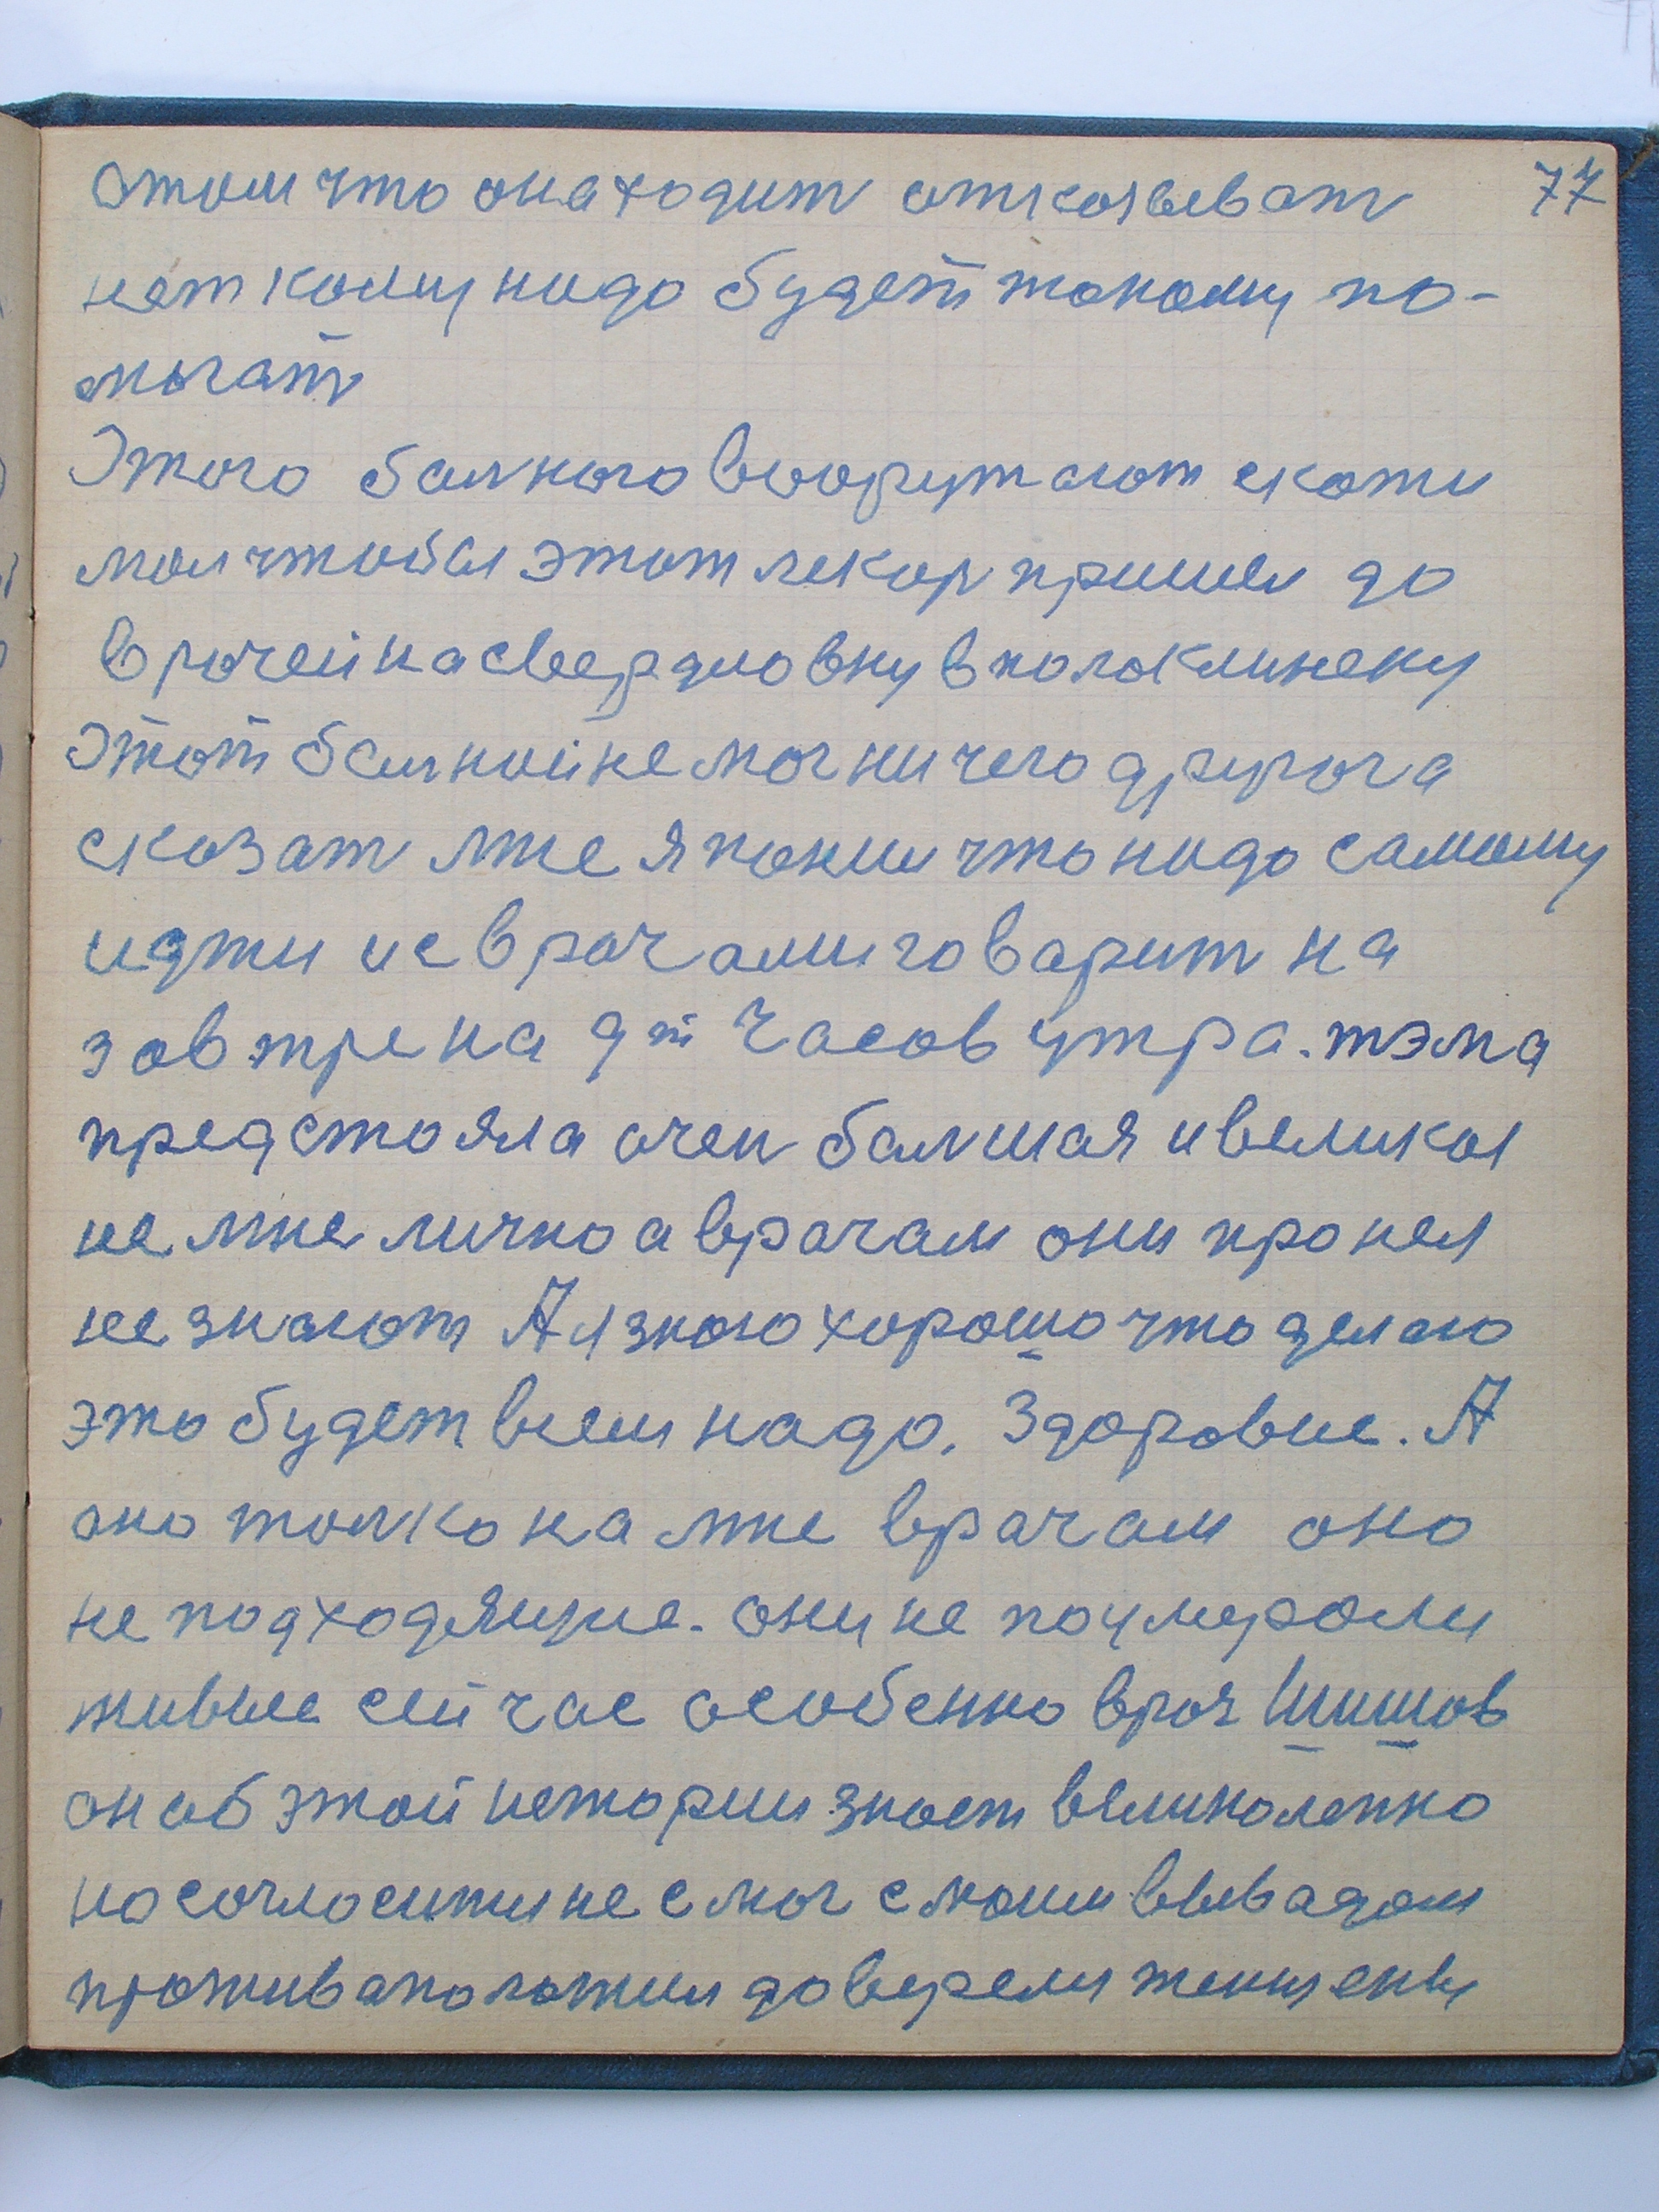 отом что онаходит отксзывват 77
нет кому нидо будет токому по-
могат
Этого болного вооружают скажи
мол чтобы этот лекор пришел до
врочей на свердловку в полоклинеку
Этот болной не мог ничего другога
сказат мне я понил что нидо самому
идти и с врочами говарит на
зовтре на 9ти часов утра. тэма
предстояла очен болшая и великоя
не мне лично а врачам они про нея
не знают А я знаю хорошо что делаю
это будет всем надо. Здоровие. А
оно толко на мне врачам оно
не подходящие. они не поумероли
живые сейчас особенно врач Шишов
он об этой истории знает великолепно
но согласитця не смог с моим выводом
противаположил доверели женщены